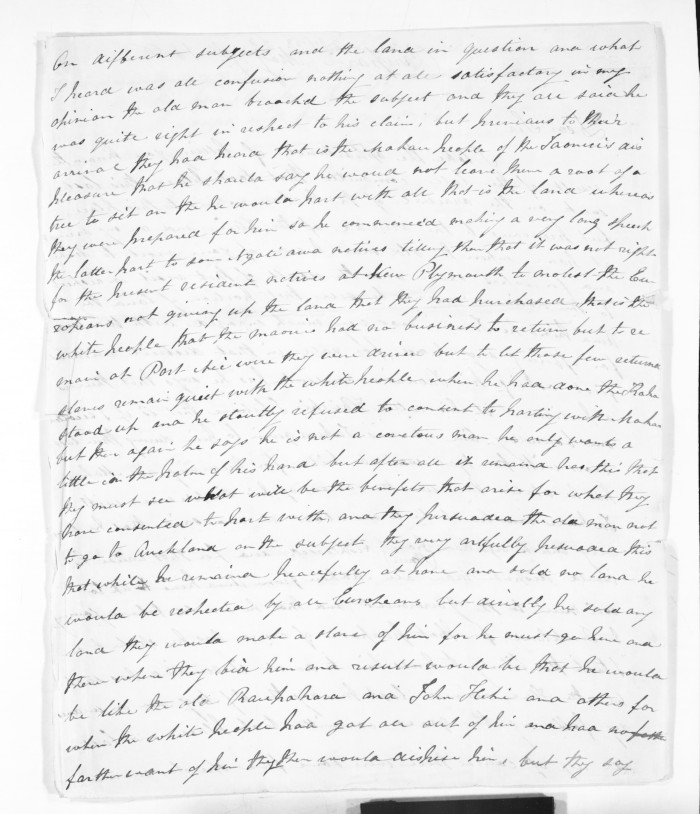 on different subjects and the land in question and what
I heard was all confusion nothing at all satisfactory in my
opinion the old man broachd the subject and they all said he
was quite right in respect to his claim, but previous to their
arrival they had heard that is the Mahau People of the Taonui's dis
pleasure that he should say he would not leave them a root of a
tree to sit on the he would part with all that is the land whereas
they were prepared for him so he commenced making a very long speech
the latter part to some Ngatiawa natives telling them that it was not right
for the present resident natives at New Plymouth to molest the Eu
ropeans not giving up the land that they had purchased that is the
white People that the maories had no business to return but to re
main at Port were they were driven but to let those few returnd
slaves remain quiet with the white People when he had done the
stood up and he stoutly refused to consent to parting with Mahau
but then again he says he is not a covetous man he only wants a
little in the palm of his hand but after all it remaind thus that
they must see what will be the benefits that arise for what they
have consented to part with, and they pursuaded the old man not
to go to Auckland on the subject they very artfully pursuaded this
that while he remaind peacefully at home and sold no land he
would be respected by all Europeans but directly he sold any
land they would make a slave of him for he must go here and
there where they bid him and result would be that he would
be like the old Rauparaha and John Heki and others for
when the white People had got all out of him and had no
farther want of him they then would dispise him, but they say